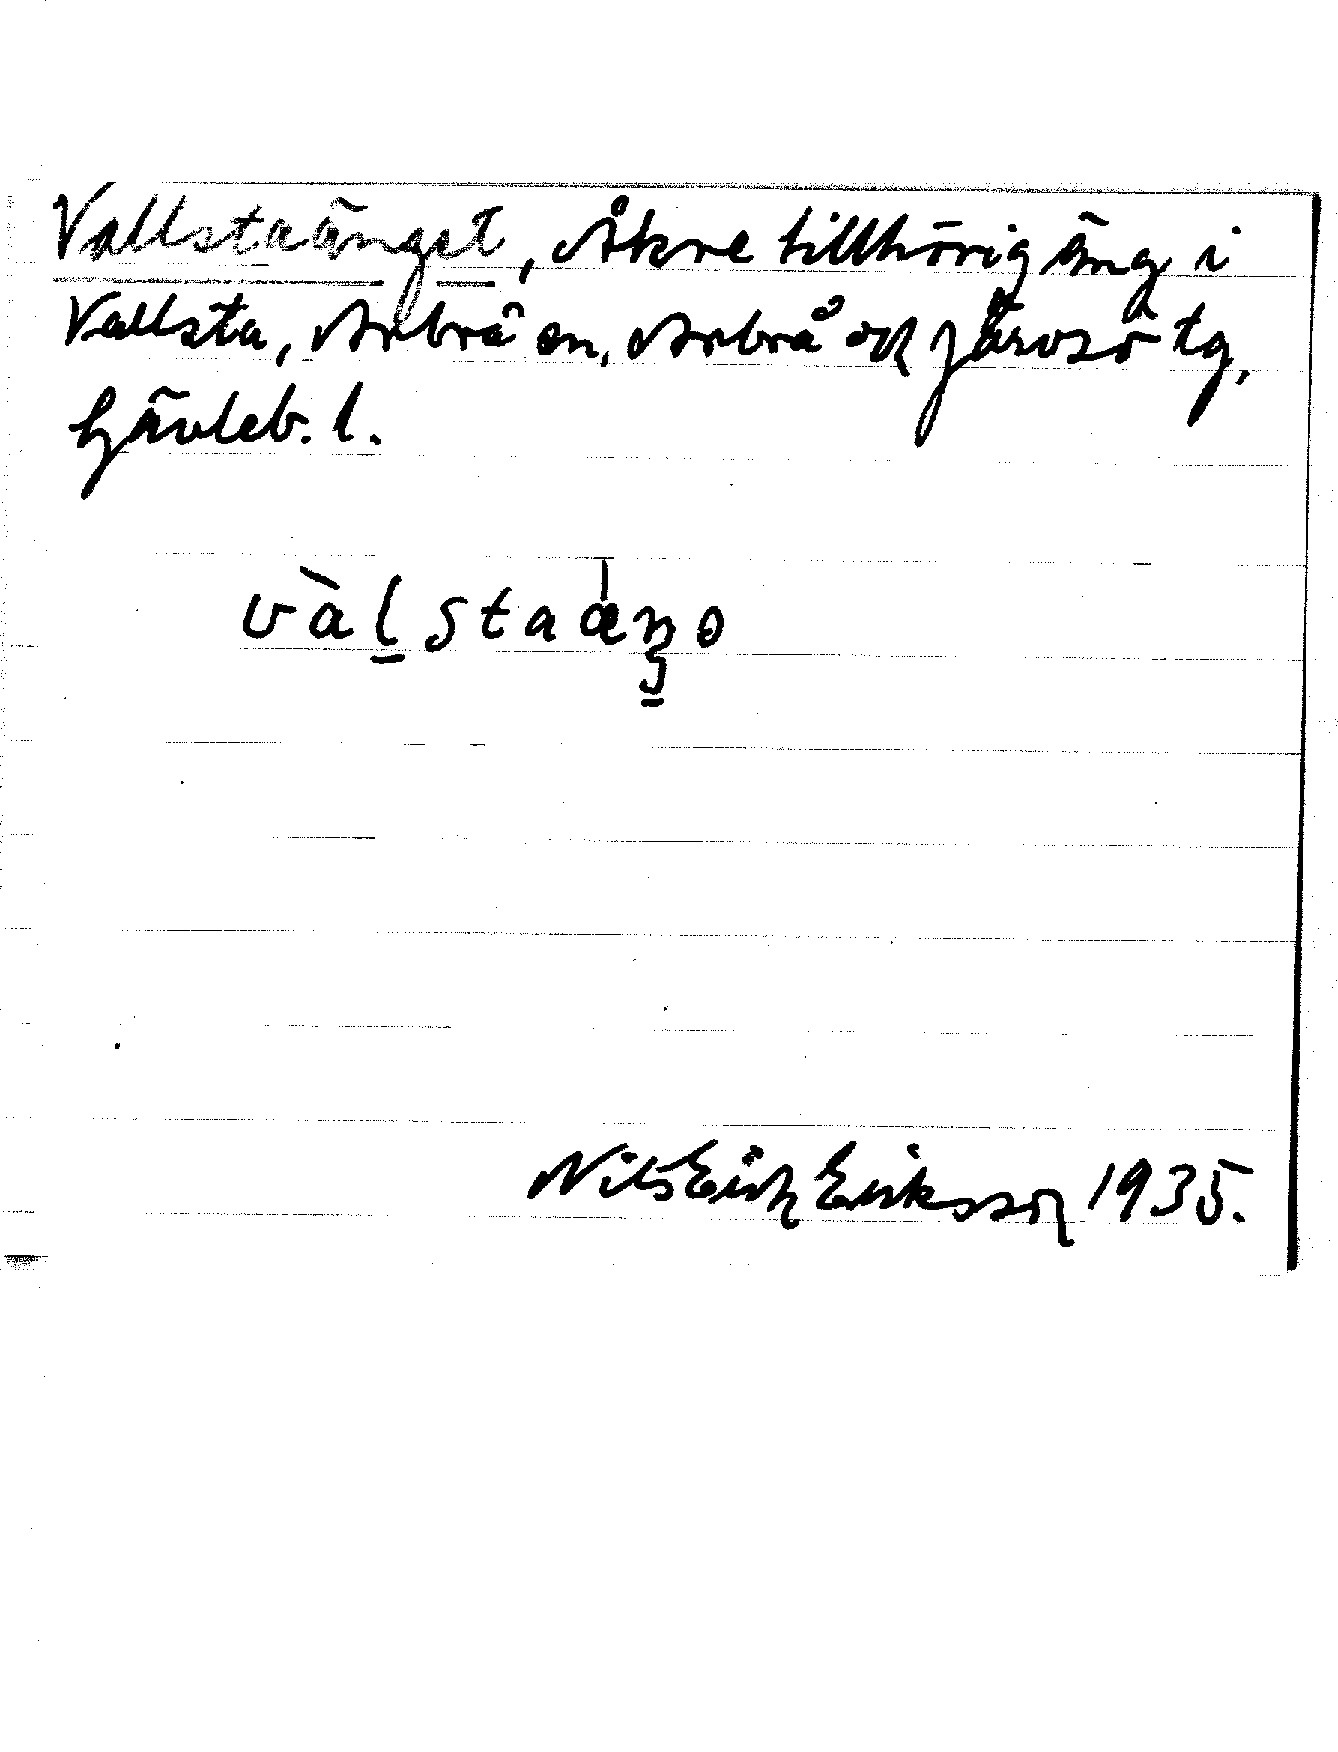 Vallstaänget, Åkre tillhörig äng i
Vallsta, Arbrå sn, Arbrå och Järvsö tg,
Gävleb. l.
vàlstaæŋo
Nils Erik Eriksson 1935.